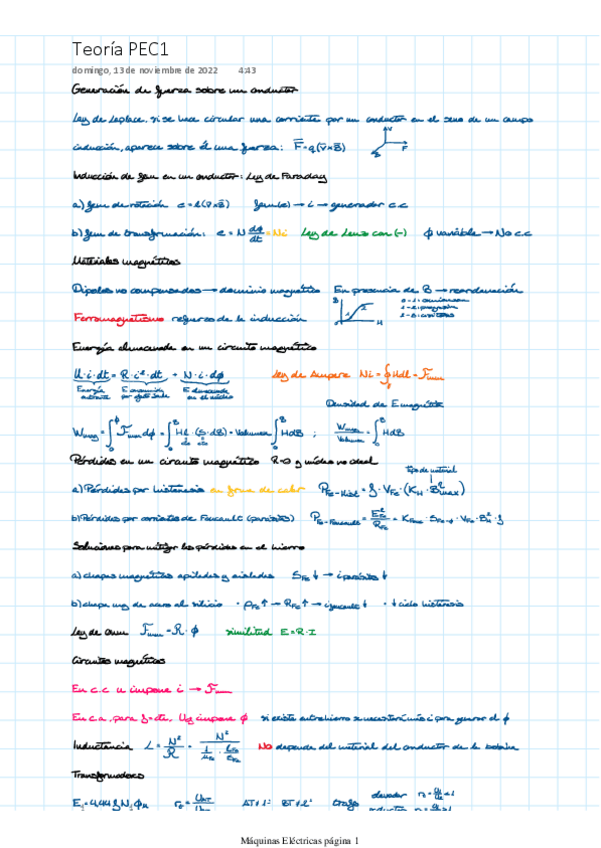 Teoría PEC1
domingo, 13 de noviembre de 2022 4:43
Generación de fuerza sobre un conductor
Ley de Laplace, si se hace circular una corriente por un conductor en el seno de un campo
inducción, aparece sobre él una fuerza: F̄ = q(v̄×B̄)
V
F
B
Inducción de fem en un conductor: Ley de Faraday
a) fem de rotación e = l(v̄×B̄) fem(e) → i → generador c.c
b) fem de transformación: e = N dφ/dt = Ni Ley de Lenz con (-) φ variable → No c.c
Materiales magnéticos
Dipolos no compensados → dominio magnético En presencia de B → reordenación
B
H
Ferromagnetismo refuerzo de la inducción
Energía almacenada en un circuito magnético
U·i·dt = R·i²·dt + N·i·dφ Ley de Ampere Ni = ∮Hdl = Fmm
Energía
E consumida por efecto Joule
Densidad de E magnética
Wmag = ∫Fmm dφ = ∫Hl·(S·dB) = Volumen ∫HdB ; Wmag/Volumen = ∫HdB
Pérdidas en un circuito magnético R=0 y núcleo no ideal
tipo de material
a) Pérdidas por histéresis en forma de calor PFe-Hist = f·VFe·(KH·Bmax)
b) Pérdidas por corrientes de Foucault (parásitas)
Soluciones para mitigar las pérdidas en el hierro
a) chapas magnéticas apiladas y aisladas SFe↓ → i parásita ↓
b) chapa mag de acero al silicio · ρFe↑ → RFe↑ → i foucault ↓ · ↓ ciclo histéresis
Ley de Ohm Fmm = R·φ similitud E = R·I
Circuitos magnéticos
En c.c se impone i → Fmm
En c.a, para f=cte, Ug impone φ si existe entrehierro se necesitará más i para generar el φ
Inductancia L = N²/R = N² No depende del material del conductor de la bobina
Transformadores
E1=4,44 f N1 φm